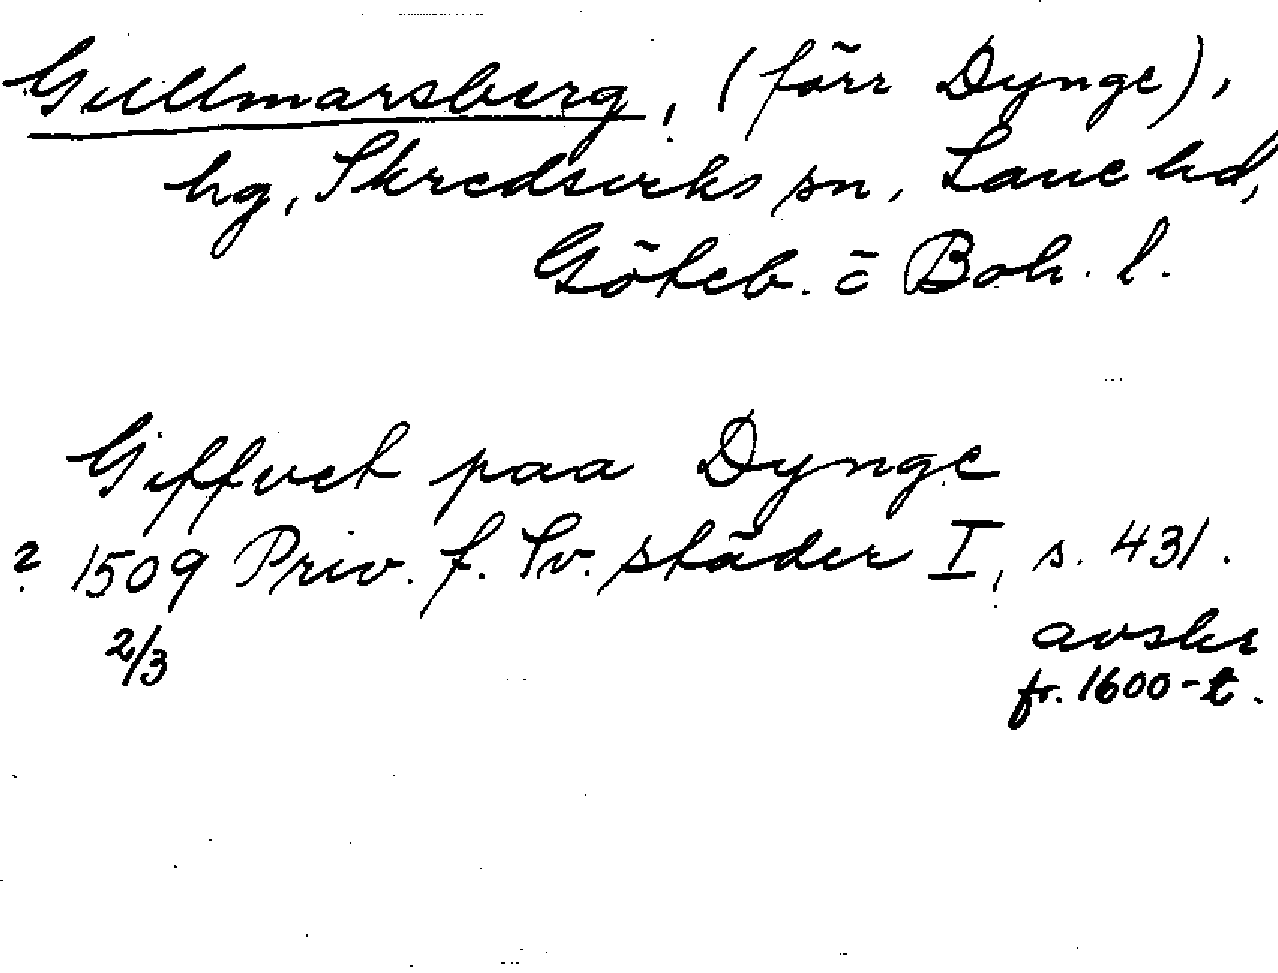 Gullmarsberg, (förr Dynge),
hg, Skredsviks sn, Lane hd,
Göteb. o Boh. l.
Giffvet paa Dynge
? 1509 Priv. f. Sv. städer I, s. 431.
2/3 avskr
fr. 1600-t.